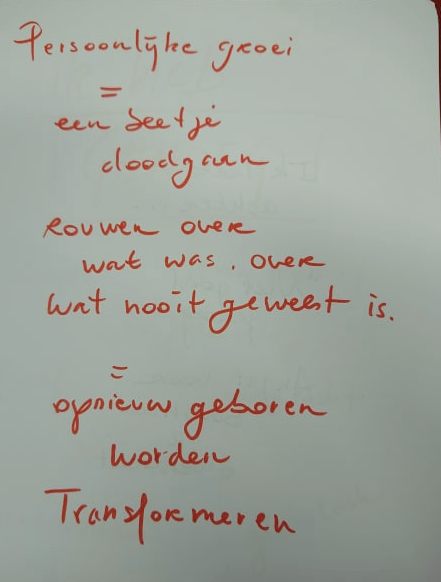 Persoonlijke groei
=
een beetje
doodgaan
rouwen over
wat was. over
wat nooit geweest is.
=
opnieuw geboren
worden
Transformeren